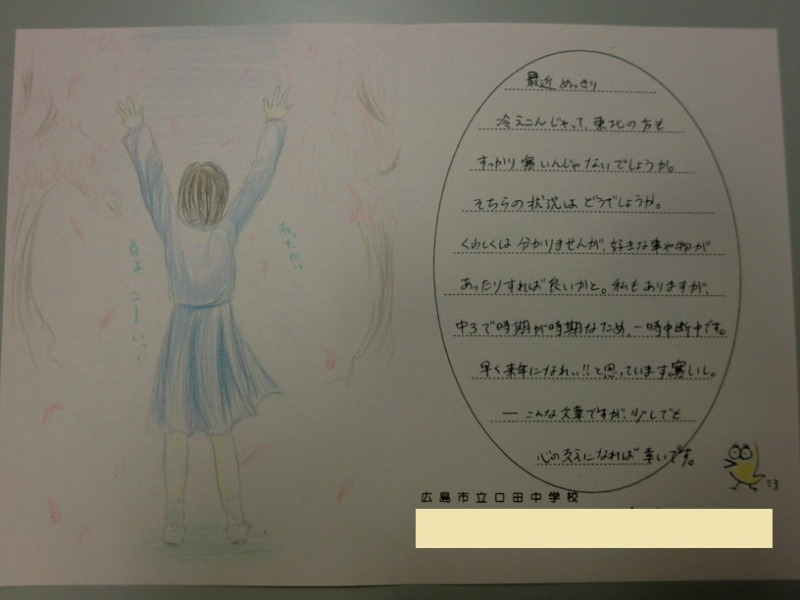 春よ こーいっ!
あったかい
最近 めっきり
冷えこんじゃって、東北の方も
すっかり寒いんじゃないでしょうか。
そちらの状況はどうでしょうか。
くわしくは分かりませんが、好きな事や物が
あったりすれば良いかと。私もありますが、
中3で時期が時期なため、一時中断中です。
早く来年になれぃ!!と思っています。寒いし。
ー こんな文章ですが、少しでも
心の支えになれば幸いです。
広島市立口田中学校